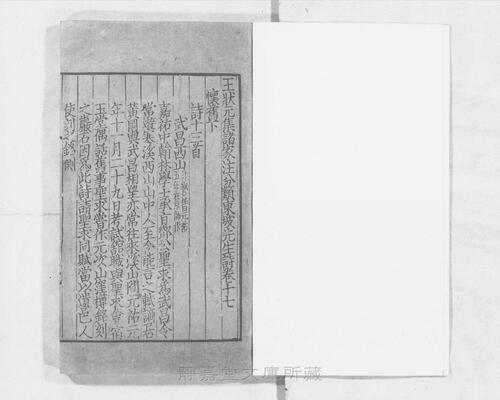 王狀元集諸家注分類東坡先生詩卷十七
懷舊下
詩十三首
武昌西山
嘉祐中翰林學士承旨鄧公聖求為武昌令
常遊寒溪西山山中人至今能言之軾謫居
黃岡與武昌相望亦常往來溪山間元祐元
年十一月二十九日考試館職與聖求會宿
玉堂偶話舊事聖求嘗作元次山窪樽銘刻
之巖石因為此詩請聖求同賦當以遺邑人
使刻之銘側
靜嘉堂文庫所藏